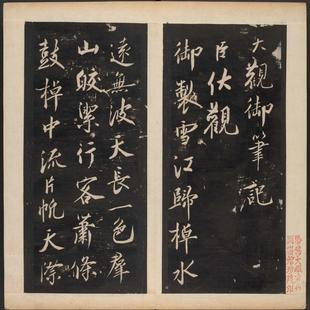 大觀御筆記
臣伏觀
御製雪江歸棹水
遠無波天長一色羣
山皎潔行客蕭條
鼓棹中流片帆天際